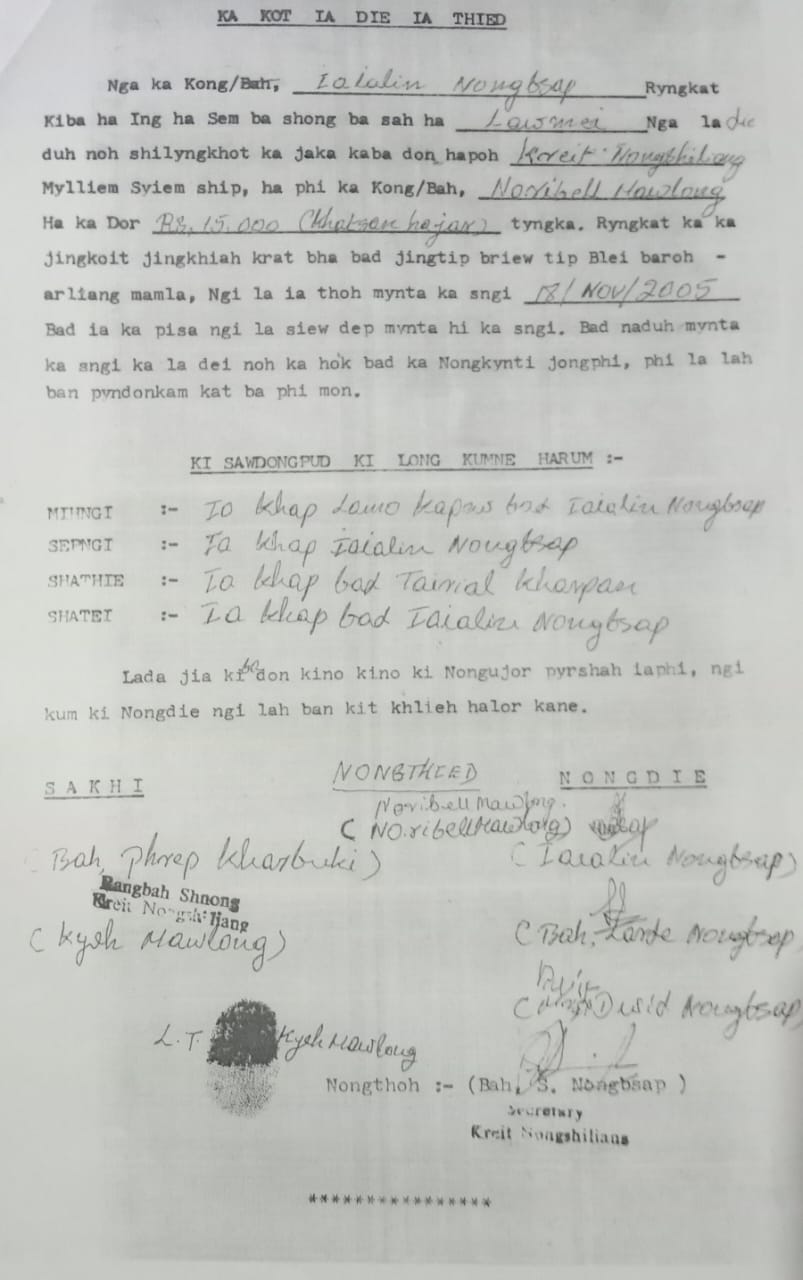 KA KOT IA DIE IA THIED
Nga ka Kong/Bah, Iaialin Nongbsap Ryngkat
Kiba ha Ing ha Sem ba shong ba sah ha Lawmei Nga la die
duh noh shilyngkhot ka jaka kaba don hapoh Kreit Nongshiliang
Mylliem Syiem ship, ha phi ka Kong/Bah, Noribell Mawlong
Ha ka Dor Rs, 15,000 (Khatsan hajar) tyngka. Ryngkat ka ka
jingkoit jingkhiah krat bha bad jingtip briew tip Blei baroh -
arliang mamla, Ngi la ia thoh mynta ka sngi 18/Nov/2005
Bad ia ka pisa ngi la siew dep mynta hi ka sngi. Bad naduh mynta
ka sngi ka la dei noh ka hok bad ka Nongkynti jongphi, phi la lah
ban pyndonkam kat ba phi mon.
KI SAWDONGPUD KI LONG KUMNE HARUM :-
MIHNGI :- Ia khap bad Iaialin Nongbsap
SEPNGI :- Ia khap Iaialin Nongbsap
SHATHIE :- Ia khap bad Tairial Kharpan
SHATEI :- Ia khap bad Iaialin Nongbsap
Lada jia ki ba don kino kino ki Nongujor pyrshah iaphi, ngi
kum ki Nongdie ngi lah ban kit khlieh halor kane.
SAKHI NONGTHIED NONGDIE
Noribell Mawlong.
(Noribell Mawlong)
(Bah, Phrep Kharbuki) (Iaialin Nongbsap)
Rangbah Shnong
Kreit Nongshiliang
(Kyeh Mawlong) (Bah, Nongbsap
Dusid Nongbsap
L.T. Kyeh Mawlong
Nongthoh :- (Bah, S. Nongbsap )
Secretary
Kreit Nongshiliang
****************